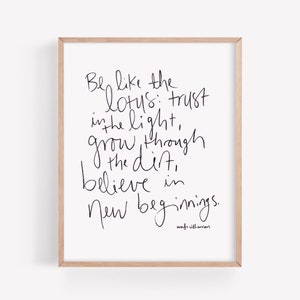 Be like the
lotus: trust
in the light,
grow through
the dirt,
believe in
new beginnings.